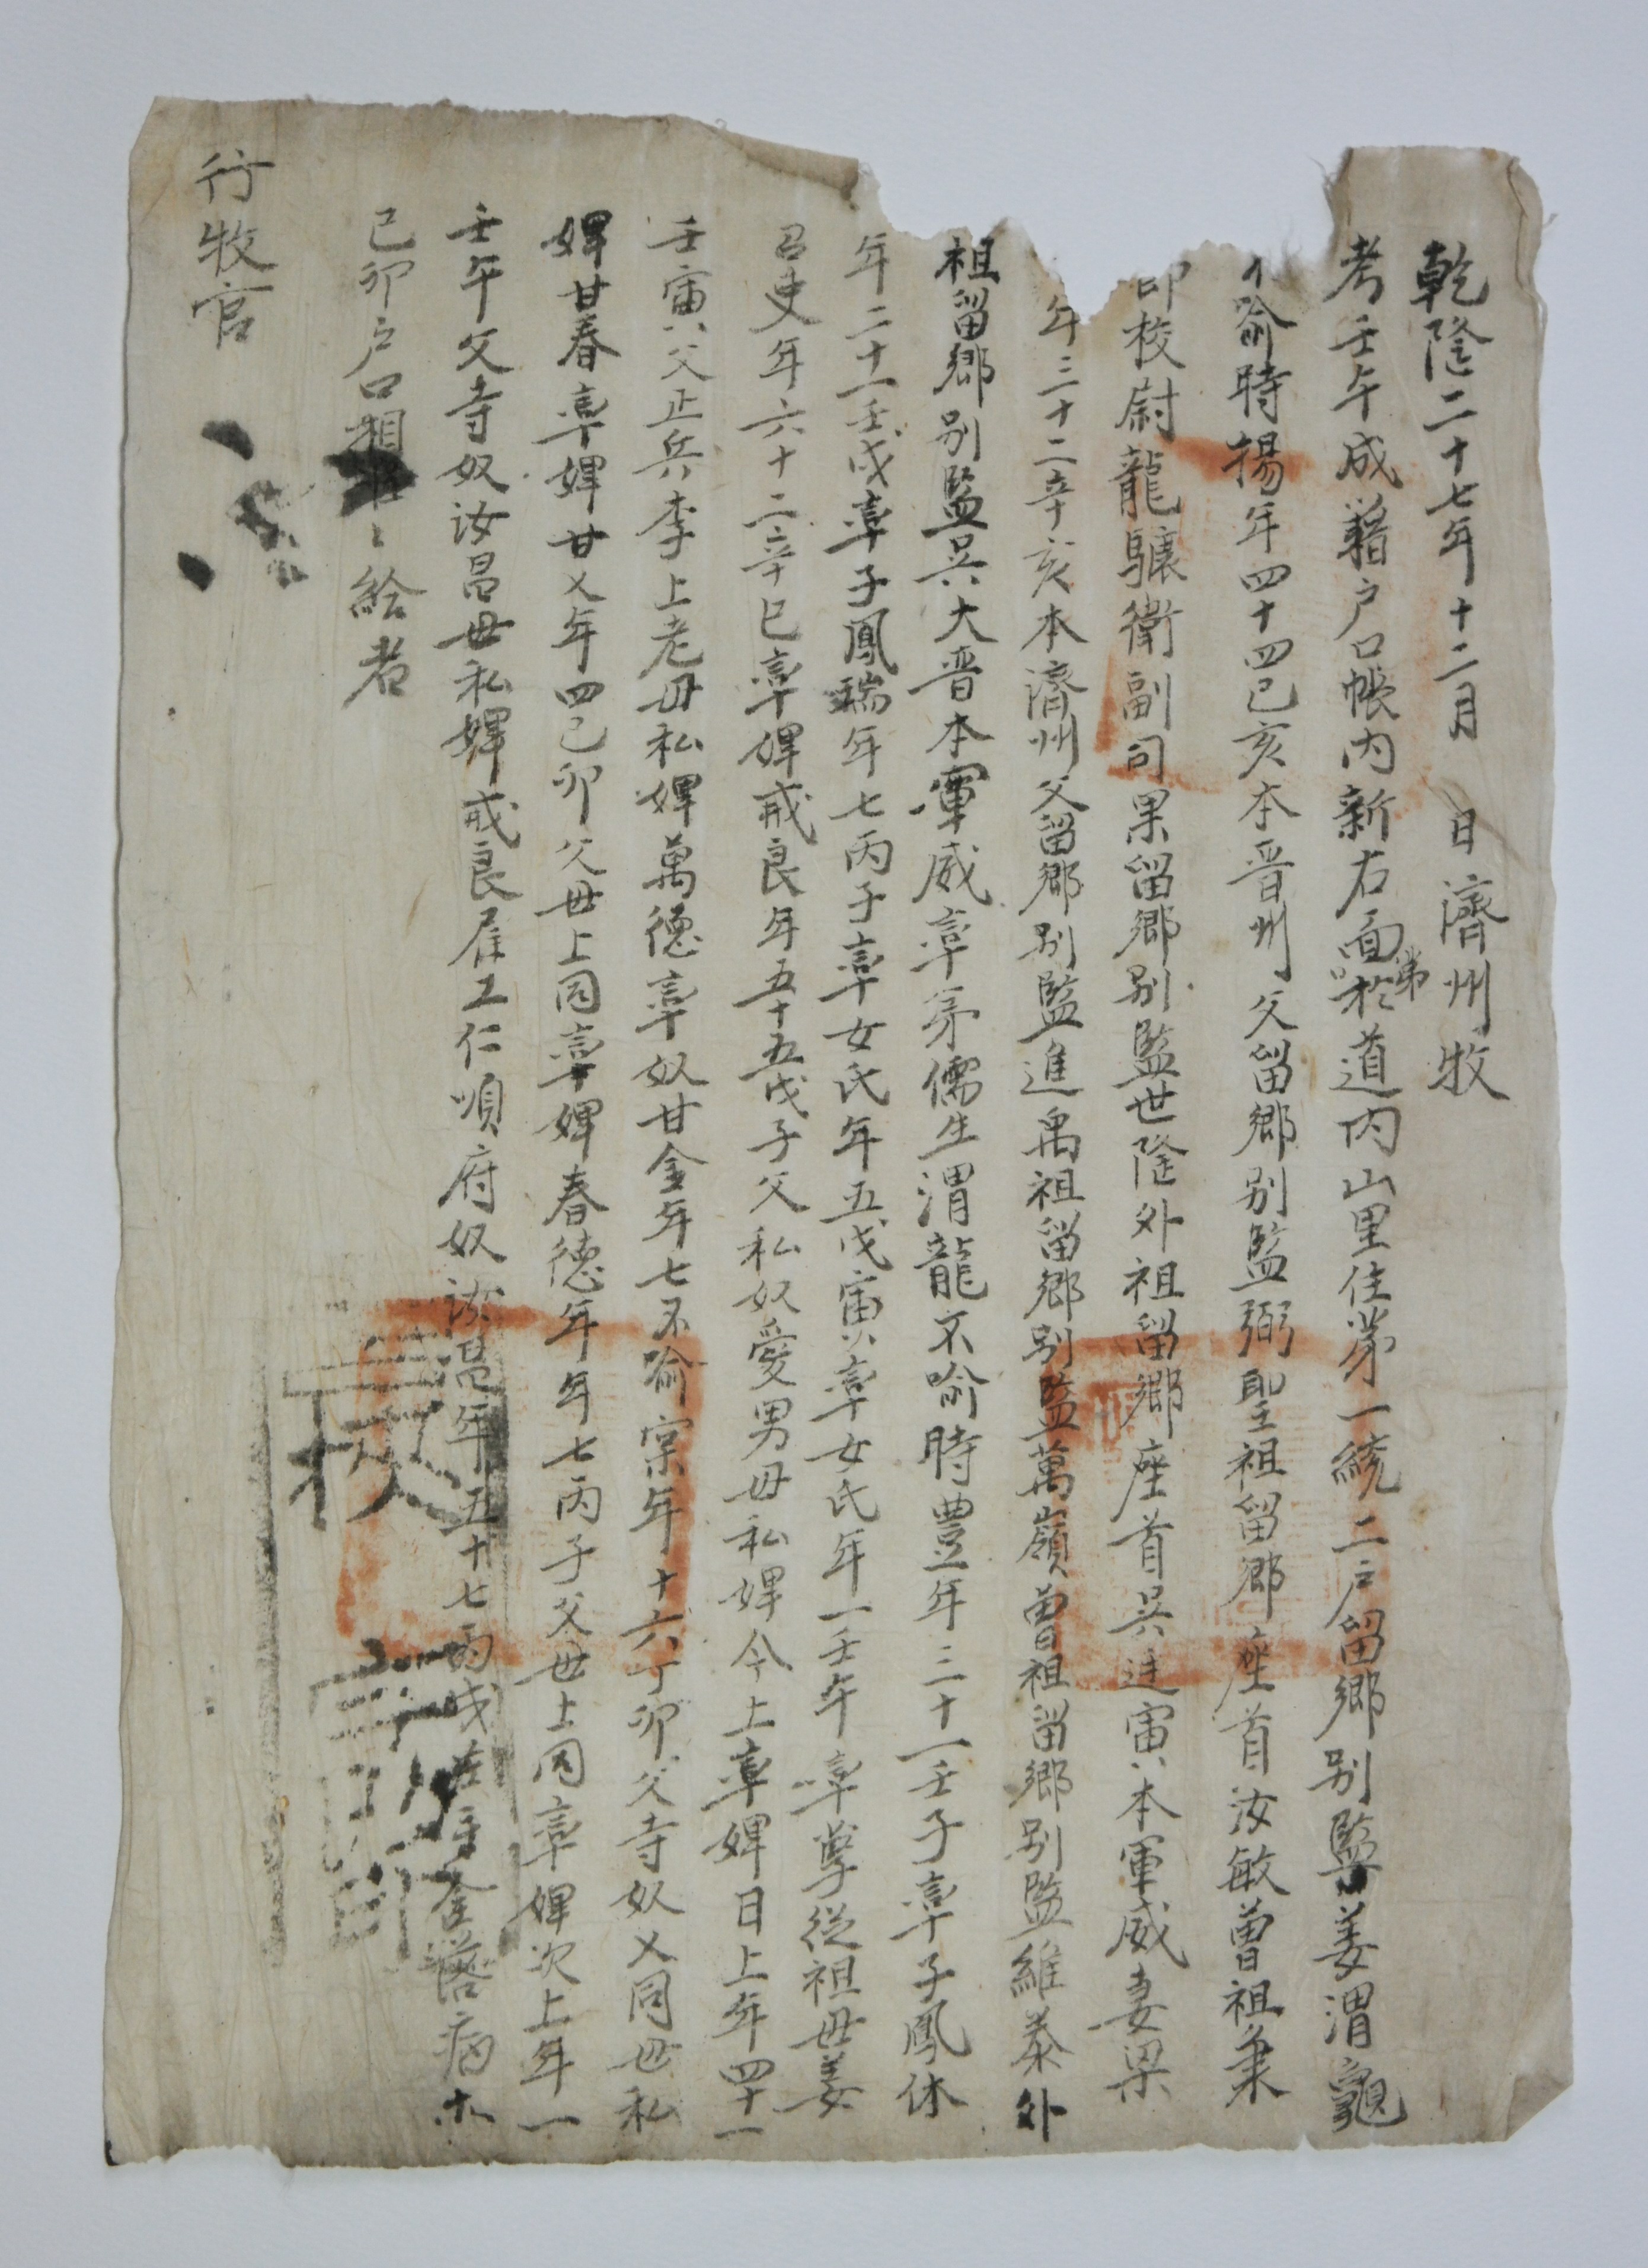 乾隆二十七年十二月 日濟州牧
考壬午成籍戶口帳內新右面於道內山里住第一統二戶留鄕別監姜渭龜
喩時揚年四十四己亥本晋州父留鄕別監弼聖祖留鄕座首汝敏曾祖秉
卽校尉龍驤衛副司果留鄕別監世隆外祖留鄕座首吳廷寅本軍威妻梁
年三十二辛亥本濟州父留鄕別監進禹祖留鄕別監萬嶺曾祖留鄕別監維泰外
祖留鄕別監吳大晋本軍威率弟儒生渭龍不喩時豊年三十一壬子率子鳳休
年二十一壬戌率子鳳瑞年七丙子率女氏年五戊寅率女氏年一壬午率孽從祖母姜
召史年六十二辛巳率婢戒良年五十五戊子父私奴愛男母私婢今上率婢日上年四十一
壬寅父正兵李上老母私婢萬德率奴甘金年七不喩宗年十六丁卯父寺奴乂同母私
婢甘春率婢甘乂年四己卯父母上同率婢春德年年七丙子父母上同率婢次上年一
壬午父寺奴汝昌母私婢戒良雇工仁順府奴 年五十七丙戌
己卯戶口相準々給者
行牧官